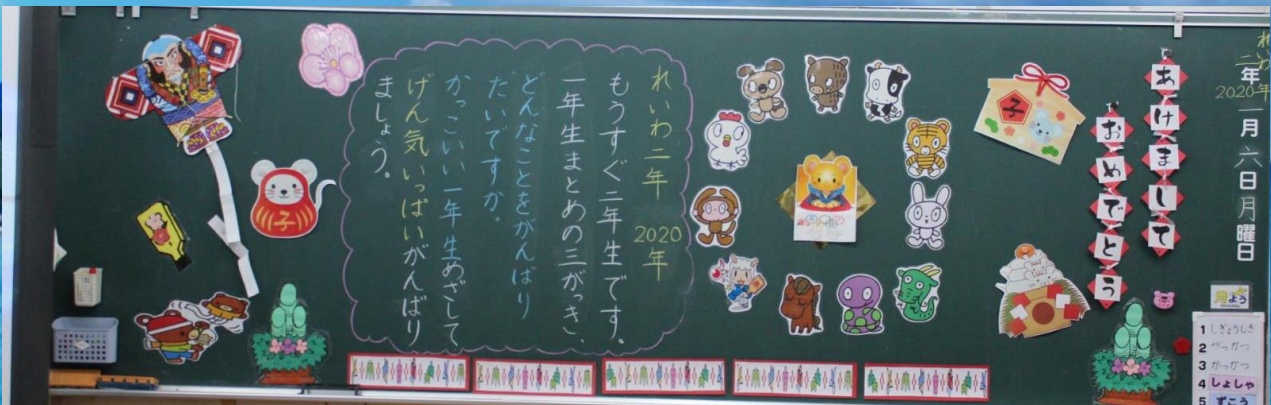 れいわ二年
2020年
一月六日月曜日
あけまして
おめでとう
子
れいわ二年 2020年
もうすぐ二年生です。
一年生まとめの三がっき、
どんなことをがんばり
たいですか。
かっこいい一年生めざして
げん気いっぱいがんばり
ましょう。
子
月よう
1 しぎょうしき
2 がっかつ
3 がっかつ
4 しょしゃ
5 ずこう